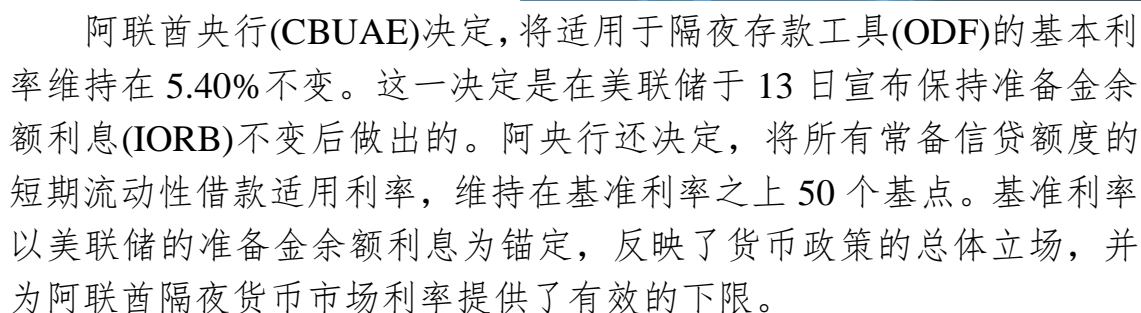 阿联酋央行(CBUAE)决定，将适用于隔夜存款工具(ODF)的基本利
率维持在 5.40%不变。这一决定是在美联储于 13 日宣布保持准备金余
额利息(IORB)不变后做出的。阿央行还决定，将所有常备信贷额度的
短期流动性借款适用利率，维持在基准利率之上 50 个基点。基准利率
以美联储的准备金余额利息为锚定，反映了货币政策的总体立场，并
为阿联酋隔夜货币市场利率提供了有效的下限。